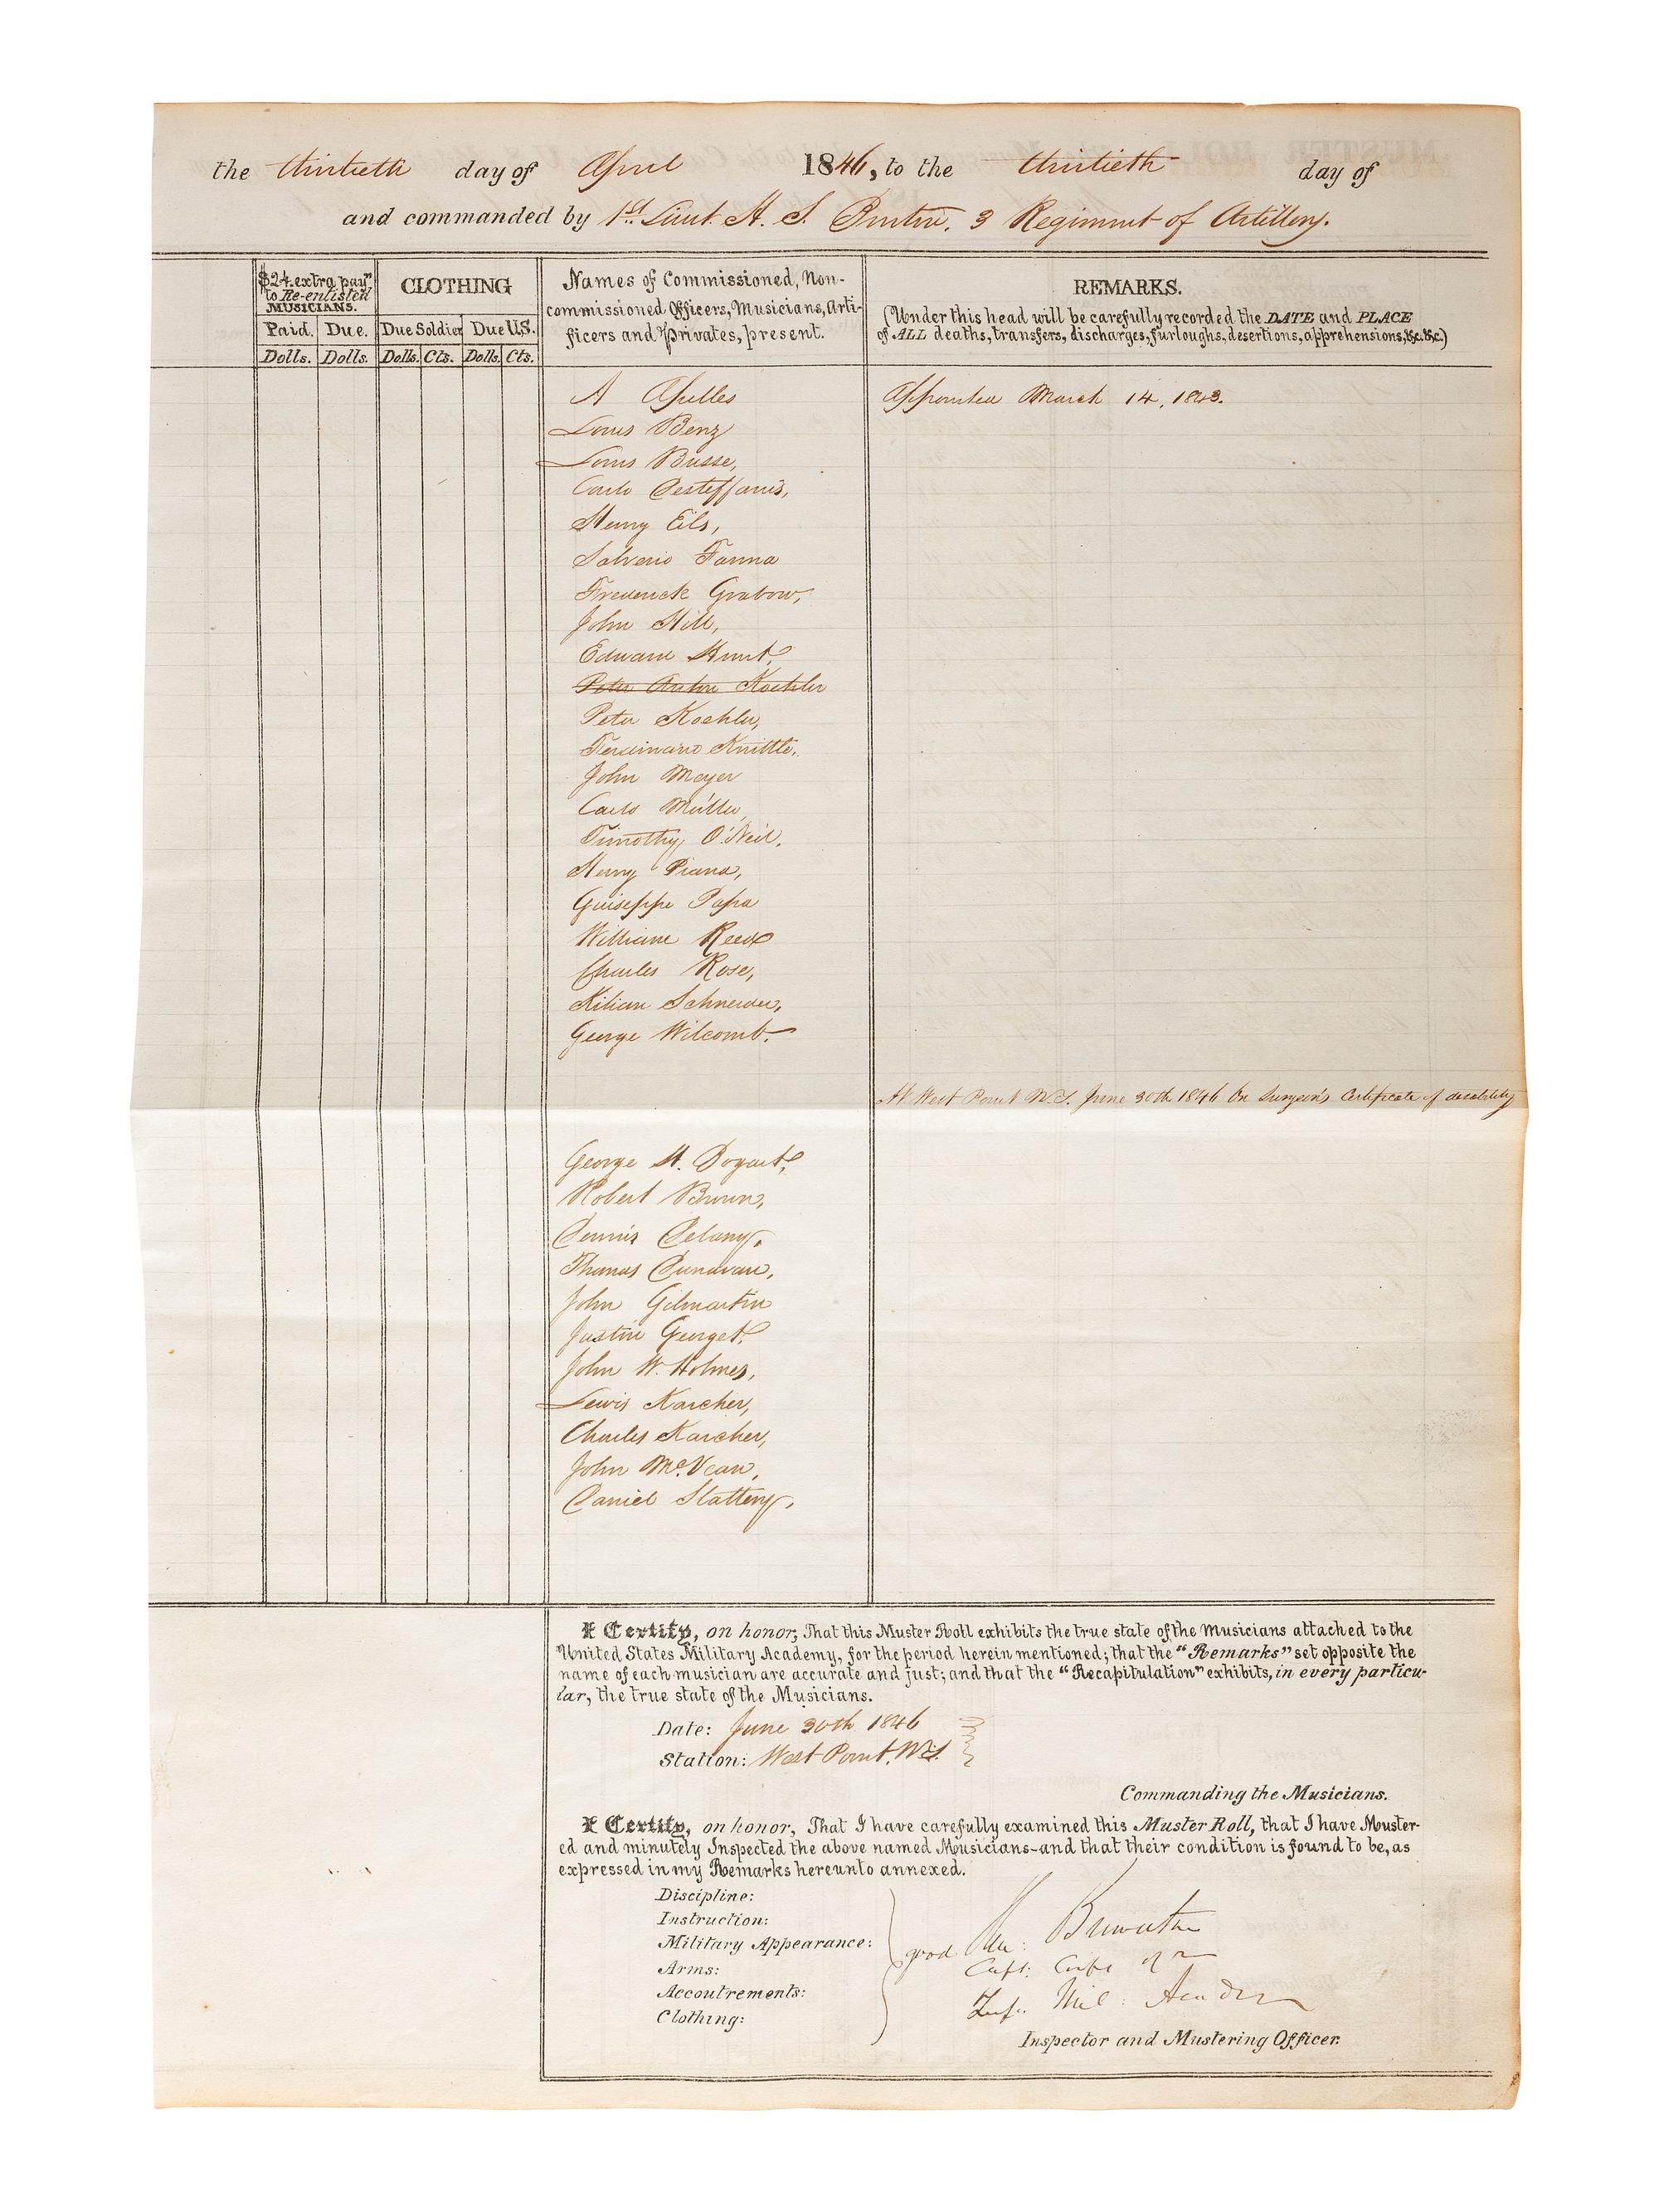 the thirtieth day of April 1846, to the thirtieth day of
and commanded by 1st Lieut. H. S. Burton, 3 Regiment of Artillery.
$24 extra pay to Re-enlisted MUSICIANS.
Paid. Due.
Dolls. Dolls.
CLOTHING
Due Soldier Due U.S.
Dolls. Cts. Dolls. Cts.
Names of Commissioned, Non-
commissioned Officers, Musicians, Arti-
ficers and Privates, present.
REMARKS.
(Under this head will be carefully recorded the DATE and PLACE
of ALL deaths, transfers, discharges, furloughs, desertions, apprehensions, &c. &c.)
A Apelles Appointed March 14, 1843.
Louis Benz
Louis Busse,
Carlo Desteffanis,
Henry Eils,
Salverio Fanna
Frederick Grabow,
John Hill,
Edward Hunt,
Peter Anton Koehler
Peter Koehler,
Ferdinand Knittle,
John Meyer
Carlo Müller,
Timothy O'Neil,
Henry Piana,
Guiseppe Papa
William Reed
Charles Rose,
Kilian Schneider,
George Wilcomb.
At West Point N.Y. June 30th 1846 On Surgeon's Certificate of disability
George H. Bogart,
Robert Brown,
Dennis Delany,
Thomas Donavan,
John Gilmartin
Justin Georget,
John W. Holmes,
Lewis Karcher,
Charles Karcher,
John McVean,
Daniel Slattery,
I Certify, on honor, That this Muster Roll exhibits the true state of the Musicians attached to the
United States Military Academy, for the period herein mentioned; that the "Remarks" set opposite the
name of each musician are accurate and just; and that the "Recapitulation" exhibits, in every particu-
lar, the true state of the Musicians.
Date: June 30th 1846
Station: West Point, N.Y.
Commanding the Musicians.
I Certify, on honor, That I have carefully examined this Muster Roll, that I have Muster-
ed and minutely Inspected the above named Musicians-and that their condition is found to be, as
expressed in my Remarks hereunto annexed.
Discipline:
Instruction:
Military Appearance:
Arms:
Accoutrements:
Clothing:
good
Brewerton
Capt: Corps of
Sup. Mil: Academy
Inspector and Mustering Officer.